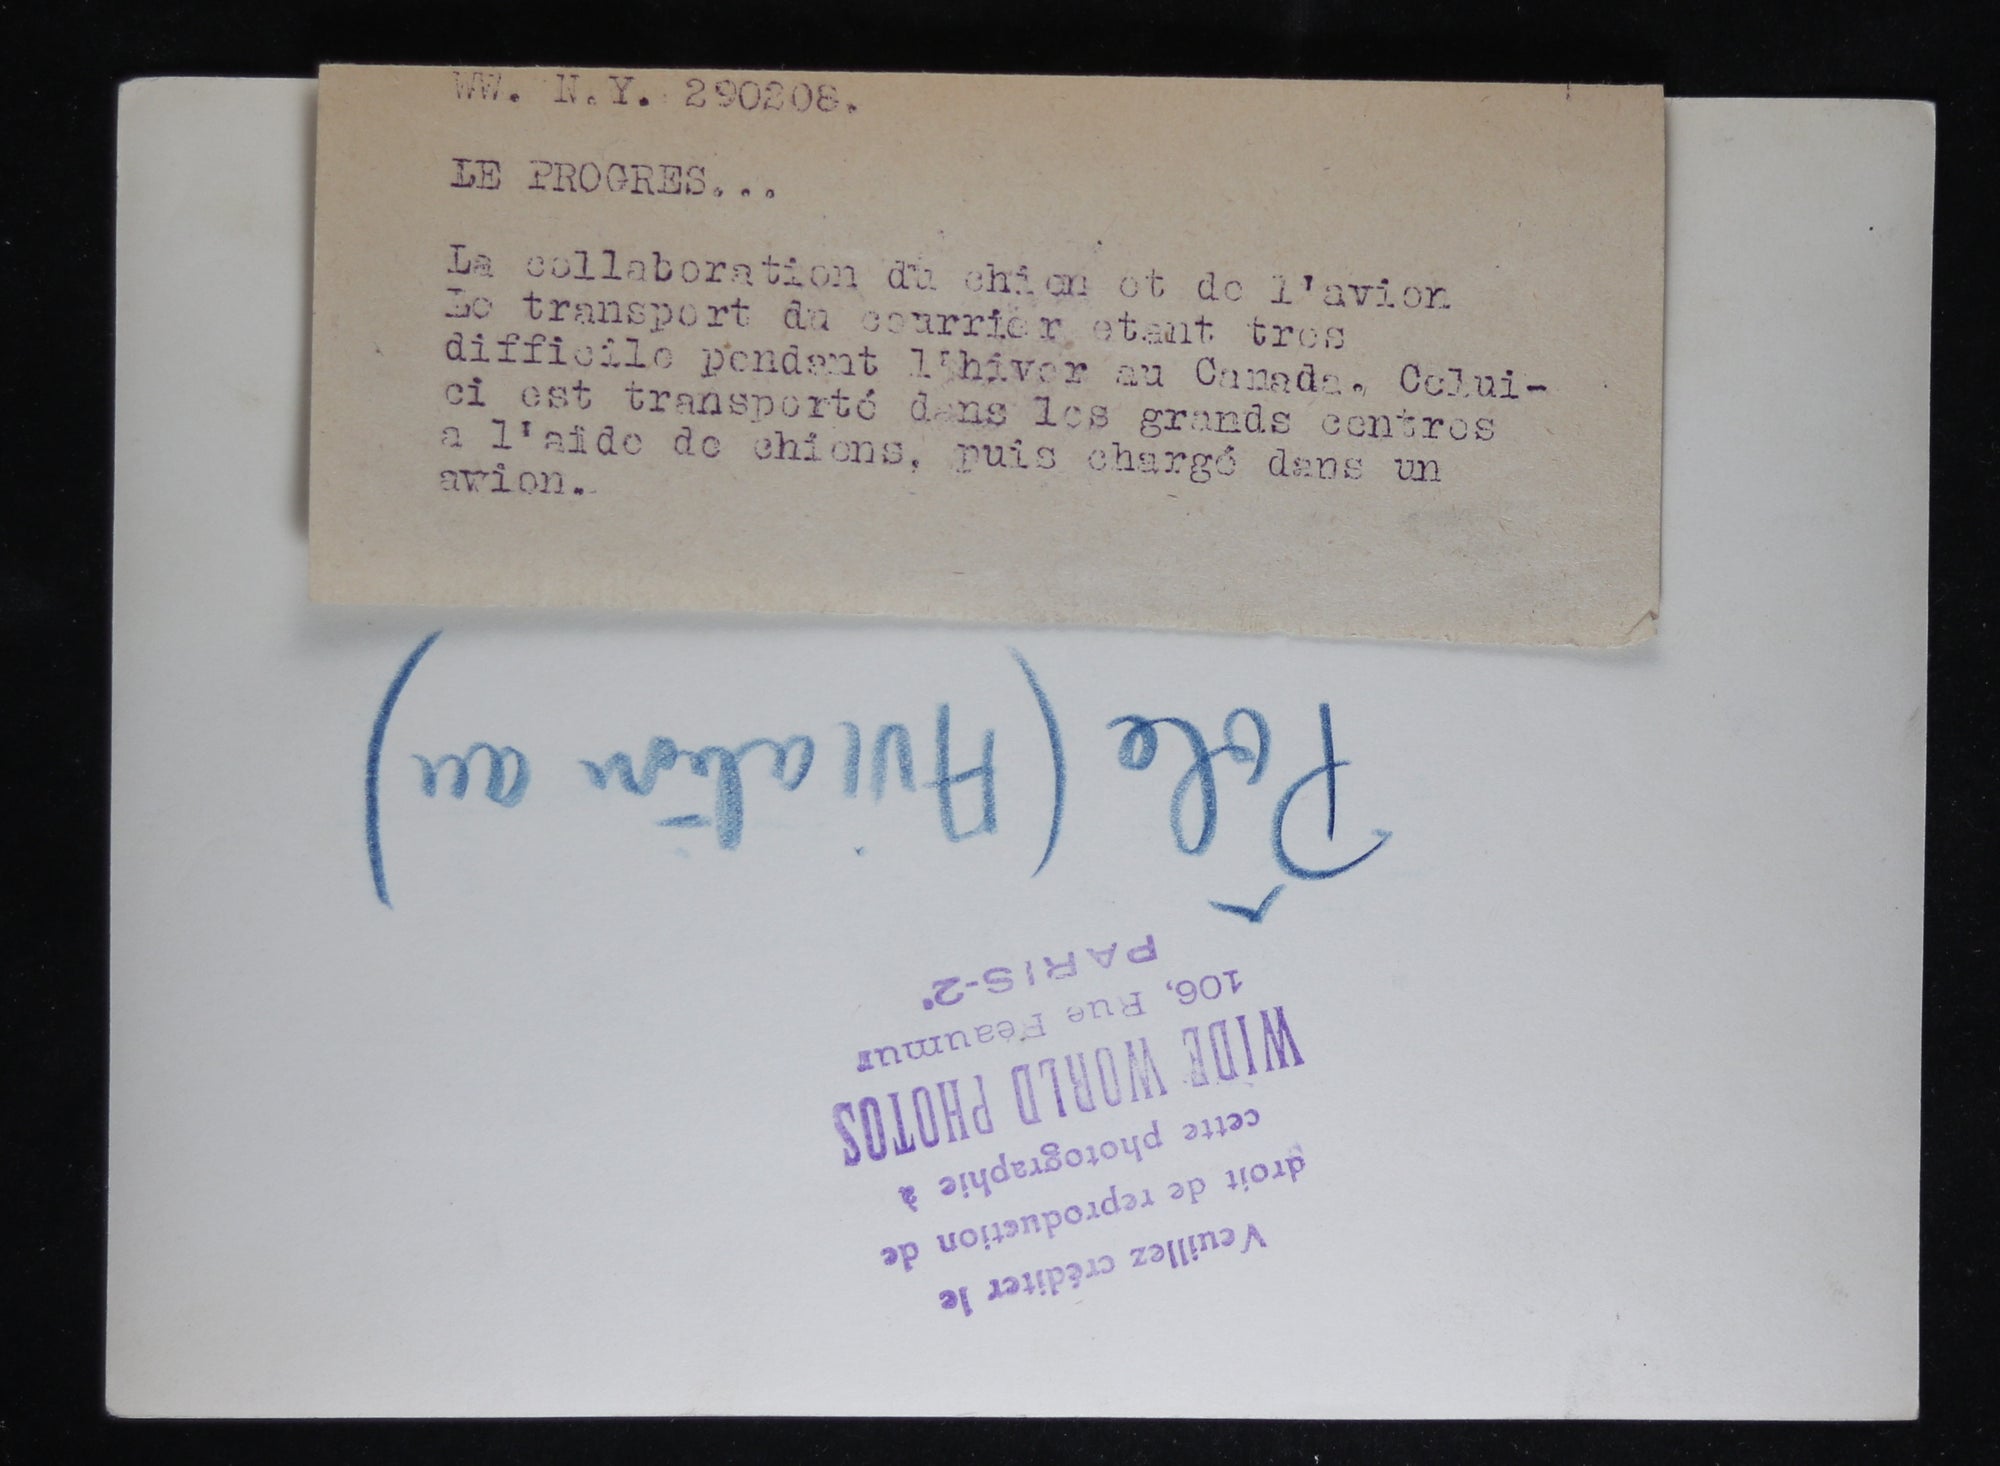 WW. N.Y. 290208.
LE PROGRES...
La collaboration du chien et de l'avion
Le transport du courrier etant tres
difficile pendant l'hiver au Canada. Celui-
ci est transporté dans les grands centres
a l'aide de chiens, puis chargé dans un
avion.
Pôle (Aviation au)
Veuillez créditer le
droit de reproduction de
cette photographie à
WIDE WORLD PHOTOS
106, Rue Réaumur
PARIS-2ᵉ